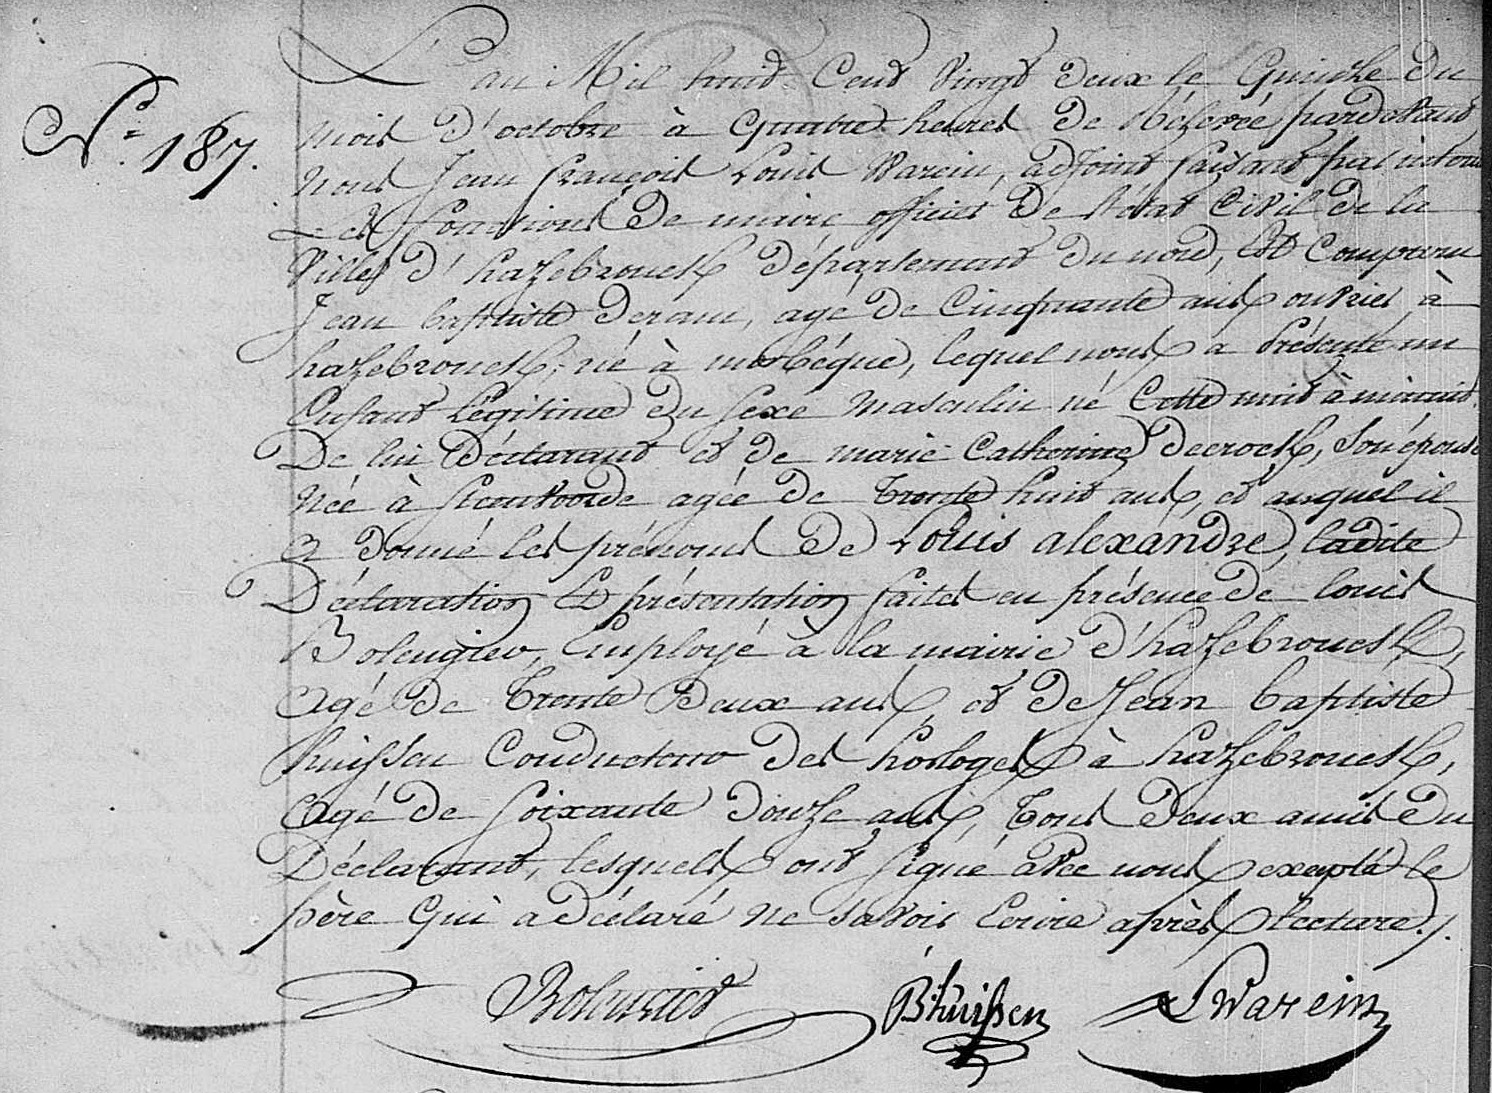 N.° 187.
L'an Mil huit Cent Vingt deux le Quinze Du
mois D'octobre à Quatre heures De Rélevée pardevant
nous Jean françois Louis Warein, adjoint faisant par interim
Les fonctions De maire officier De l'état Civil De la
Ville d'hazebrouck Département Du nord, Est Comparu
Jean baptiste Deram, agé De Cinquante ans ouvrier à
hazebrouck, né à morbéque, lequel nous a Présenté un
Enfant Légitime Du sexe Masculin né Cette nuit à minuit
De lui Déclarant et de marie Catherine Decrock, son épouse
Née à Steenvoorde agée De Trente huit ans, et auquel il
a Donné les prénoms De Louis alexandre, ladite
Déclaration Et présentation faites en présence De louis
Bolengier, Employé à la mairie d'hazebrouck,
Agé De Trente Deux ans, et De Jean baptiste
huissen Conducteur Des horloges à hazebrouck,
Agé De soixante Douze ans, Tous Deux amis Du
Déclarant, lesquels ont signé avec nous, excepté le
père Qui a Déclaré Ne savoir Ecrire après lecture./.
Bolengier B huissen L Warein